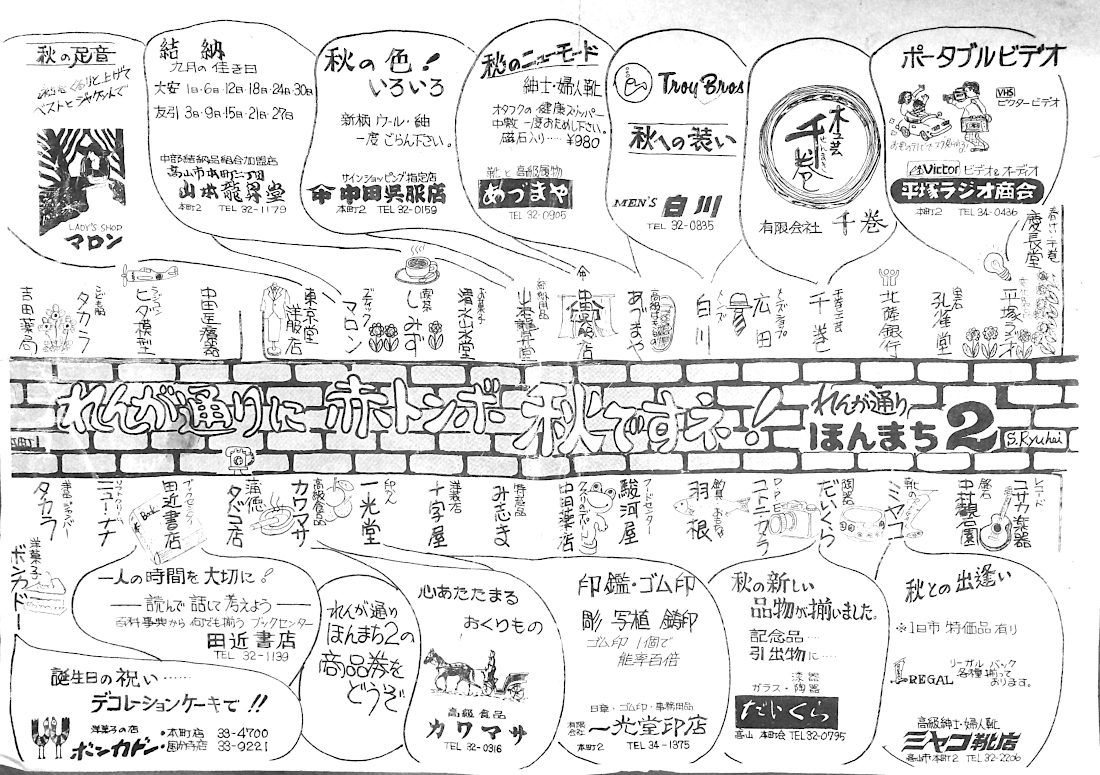 秋の足音
ベストとジャケットで
LADY'S SHOP
マロン
結納
九月の佳き日
大安 1日・6日・12日・18日・24日・30日
友引 3日・9日・15日・21日・27日
中部結納品組合加盟店
高山市本町二丁目
山本龍昇堂
本町2 TEL 32-1179
秋の色!
いろいろ
新柄ウール・紬
一度ごらん下さい。
サインショッピング指定店
中田呉服店
本町2 TEL 32-0159
秋のニューモード
紳士・婦人靴
オタフクの健康スリッパー
中敷 一度おためし下さい。
磁石入り…¥980
靴と高級履物
あづまや
TEL 32-0905
Troy Bros
秋への装い
MEN'S 白川
TEL 32-0835
木工芸
千巻
せんまき
有限会社 千巻
ポータブルビデオ
VHS
ビクタービデオ
Victor ビデオ&オーディオ
平塚ラジオ商会
本町2 TEL 34-0436
慶長堂
吉田薬局
こども服
タカラ
ラジコン
ヒダ模型
中田医療器
東京堂
洋服店
ブティック
マロン
喫茶
しみず
お菓子
清水弘文堂
結納用品
山本龍昇堂
中田呉服店
あづまや
高級はきもの
メンズ
白川
メンズショップ
広田
千巻工芸
千巻
北陸銀行
宝石
孔雀堂
平塚ラジオ
れんが通りに 赤トンボ 秋ですネ!
れんが通り
ほんまち2
S.Ryuhei
洋品・ジャンパー
タカラ
ニューナ
ブックセンター
田近書店
Book
蒲徳
タバコ店
カワマサ
高級食品
印かん
一光堂
洋装店
十字屋
特産品
みさま
中田薬店
クスリのデパート
フードセンター
駿河屋
羽根
DPE
コトニカメラ
陶器
だいくら
靴の
ミヤコ
盤石
中村観石園
レコード
コサカ楽器
洋菓子
ボンカドー
一人の時間を大切に!
読んで話して考えよう
百科事典から何でも揃う ブックセンター
田近書店
TEL 32-1139
誕生日の祝い……
デコレーションケーキで!!
洋菓子の店
ボンカドー
・本町店 33-4700
・国分寺店 33-9221
れんが通り
ほんまち2の
商品券を
どうぞ
心あたたまる
おくりもの
高級食品
カワマサ
TEL 32-0316
印鑑・ゴム印
彫 写植 鋳印
ゴム印 1個で
能率百倍
日章・ゴム印・事務用品
有限会社 一光堂印店
本町2 TEL 34-1375
秋の新しい
品物が揃いました。
記念品…
引出物に……
漆器
ガラス・陶器
だいくら
高山 本町会 TEL 32-0795
秋との出逢い
※1日市 特価品有り
REGAL
リーガル バック
各種揃って
おります。
高級紳士・婦人靴
ミヤコ靴店
高山市本町2 TEL 32-2206